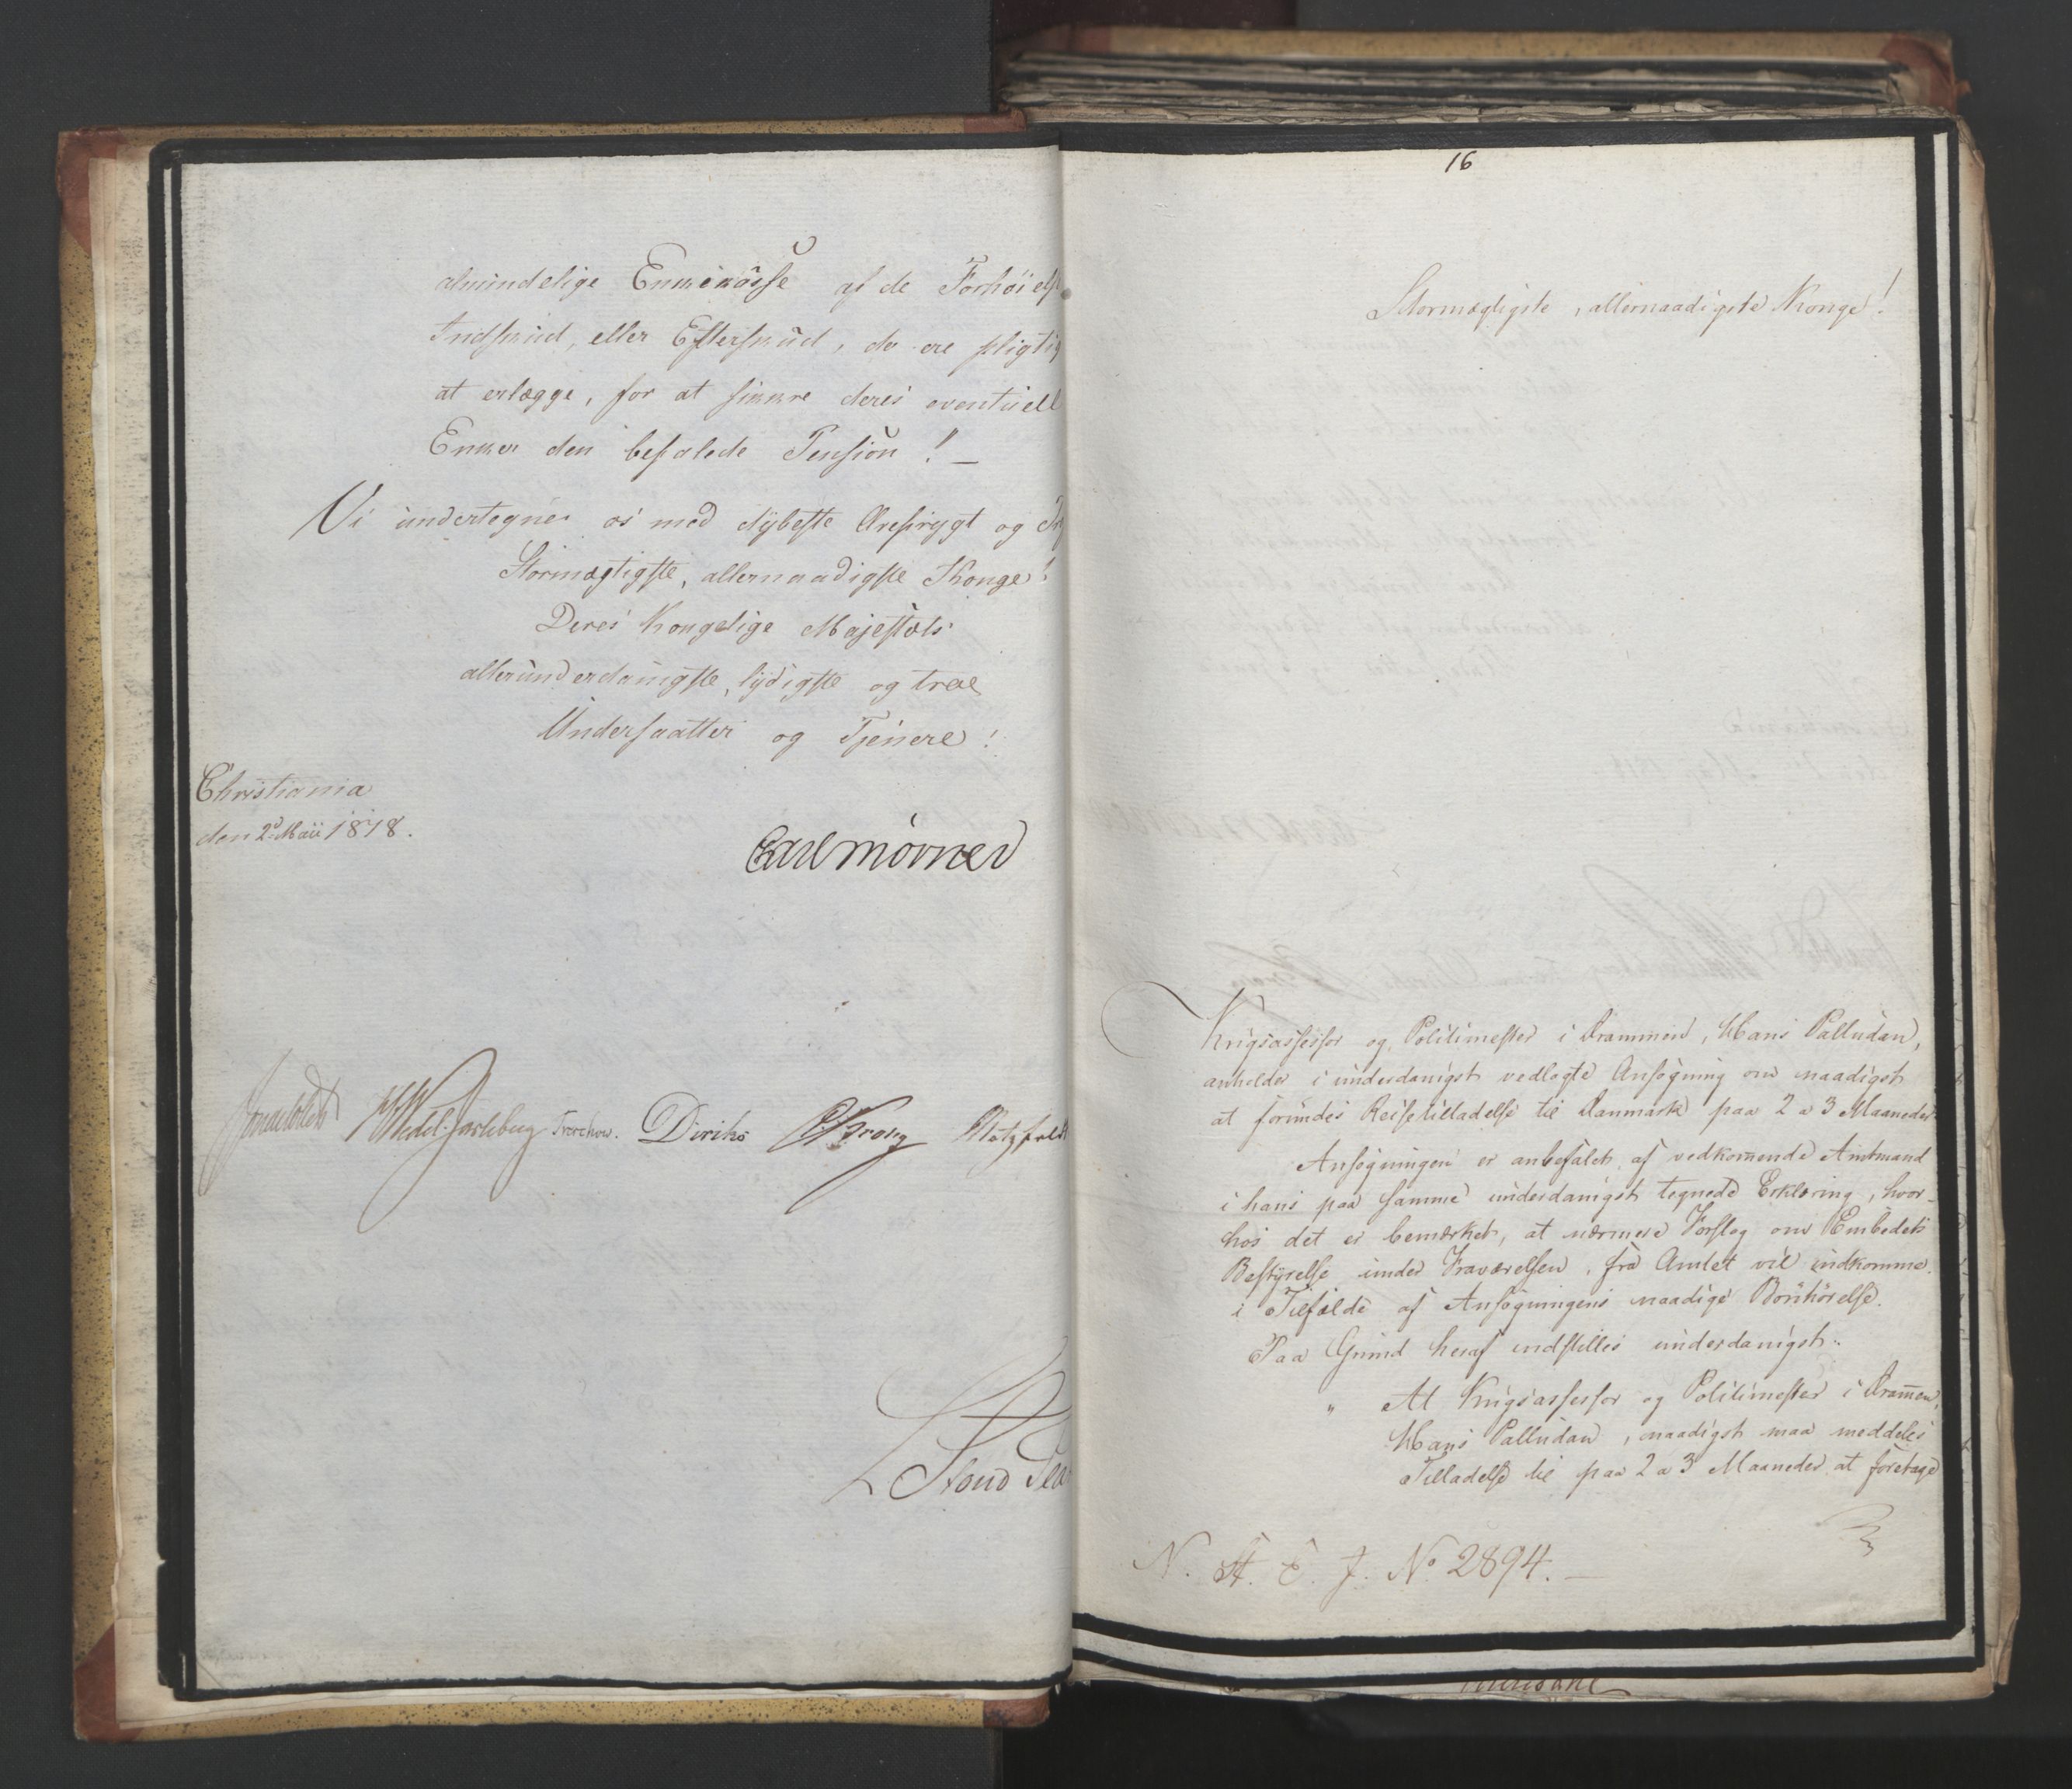 almindelige Enkekasse af de Forhøielse
Indskud, eller Efterskud, de ere pligtig
at erlægge, for at sikkre deres eventuell
Enker den befalede Pension! –
Vi undertegne os med dybeste Ærefrygt og
Stormægtigste, allernaadigste Konge!
Deres Kongelige Majestæts
allerunderdanigste, lydigste og troe
Undersaatter og Tjenere!
Christiania
den 2d Maii 1818.
Carl Mörner
Sommerhielm Wedel-Jarlsberg Treschow. Diriks C Krohg Motzfeldt
16
Stormægtigste, allernaadigste Konge!
Krigsassessor og Politimester i Drammen, Hans Palludan,
anholder i underdanigst vedlagte Ansøgning om naadigst
at forundes Reisetilladelse til Danmark paa 2 a 3 Maaneder.
Ansøgningen er anbefalet af vedkommende Amtmand
i hans paa samme underdanigst tegnede Erklæring, hvor-
hos det er bemærket, at nærmere Forslag om Embedets
Bestyrelse under Fraværelsen, fra Amtet vil indkomme
i Tilfælde af Ansøgningens naadige Bønhørelse.
Paa Grund heraf indstilles underdanigst:
" At Krigsassessor og Politimester i Drammen,
Hans Palludan, naadigst maa meddeles
Tilladelse til paa 2 a 3 Maaneder at foretage
N. St. E. J. No 2894. –